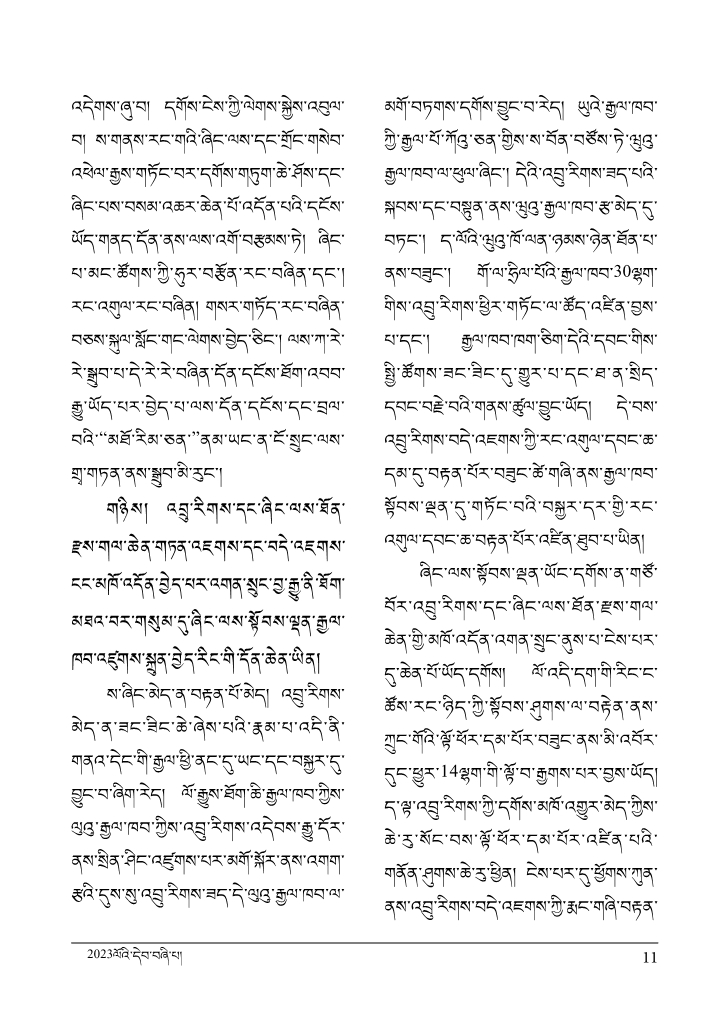 འདེགས་ཞུ་བ།  དགོས་ངེས་ཀྱི་ལེགས་སྐྱེས་འབུལ་
བ། ས་གནས་རང་གའི་ཞིང་ལས་དང་གྲོང་གསེབ་
འཕེལ་རྒྱས་གཏོང་བར་དགོས་གཏུག་ཆེ་ཤོས་དང་
ཞིང་པས་བསམ་འཆར་ཆེན་པོ་འདོན་པའི་དངོས་
ཡོད་གནད་དོན་ནས་ལས་འགོ་བརྩམས་ཏེ།  ཞིང་
པ་མང་ཚོགས་ཀྱི་ཧུར་བརྩོན་རང་བཞིན་དང་།
རང་འགུལ་རང་བཞིན། གསར་གཏོད་རང་བཞིན་
བཅས་སྐུལ་སློང་གང་ལེགས་བྱེད་ཅིང་། ལས་ཀ་རེ་
རེ་སྒྲུབ་པ་དེ་རེ་རེ་བཞིན་དོན་དངོས་ཐོག་འབབ་
རྒྱུ་ཡོད་པར་བྱེད་པ་ལས་དོན་དངོས་དང་བྲལ་
བའི་“མཐོ་རིམ་ཅན་”ནམ་ཡང་ན་ངོ་སྲུང་ལས་
གྲྭ་གཏན་ནས་སྒྲུབ་མི་རུང་།
གཉིས།  འབྲུ་རིགས་དང་ཞིང་ལས་ཐོན་
རྫས་གལ་ཆེན་གཏན་འཇགས་དང་བདེ་འཇགས་
ངང་མཁོ་འདོན་བྱེད་པར་འགན་སྲུང་བྱ་རྒྱུ་ནི་ཐོག་
མཐའ་བར་གསུམ་དུ་ཞིང་ལས་སྟོབས་ལྡན་རྒྱལ་
ཁབ་འཛུགས་སྐྲུན་བྱེད་རིང་གི་དོན་ཆེན་ཡིན།
ས་ཞིང་མེད་ན་བརྟན་པོ་མེད།  འབྲུ་རིགས་
མེད་ན་ཟང་ཟིང་ཆེ་ཞེས་པའི་རྣམ་པ་འདི་ནི་
གནའ་དེང་གི་རྒྱལ་ཕྱི་ནང་དུ་ཡང་དང་བསྐྱར་དུ་
བྱུང་བ་ཞིག་རེད།  ལོ་རྒྱུས་ཐོག་ཆི་རྒྱལ་ཁབ་ཀྱིས་
ལུའུ་རྒྱལ་ཁབ་ཀྱིས་འབྲུ་རིགས་འདེབས་རྒྱུ་དོར་
ནས་སྲིན་ཤིང་འཛུགས་པར་མགོ་སྐོར་ནས་འགག་
རྩའི་དུས་སུ་འབྲུ་རིགས་ཟད་དེ་ལུའུ་རྒྱལ་ཁབ་ལ་
མགོ་བཏགས་དགོས་བྱུང་བ་རེད།  ཡུའེ་རྒྱལ་ཁབ་
ཀྱི་རྒྱལ་པོ་ཀོའུ་ཅན་གྱིས་ས་བོན་བཙོས་ཏེ་ཝུའུ་
རྒྱལ་ཁབ་ལ་ཕུལ་ཞིང་། དེའི་འབྲུ་རིགས་ཟད་པའི་
སྐབས་དང་བསྟུན་ནས་ཝུའུ་རྒྱལ་ཁབ་རྩ་མེད་དུ་
བཏང་།  ད་ལོའི་ཝུའུ་ཁོ་ལན་ཉམས་ཉེན་ཐོན་པ་
ནས་བཟུང་།  གོ་ལ་ཧྲིལ་པོའི་རྒྱལ་ཁབ་30ལྷག་
གིས་འབྲུ་རིགས་ཕྱིར་གཏོང་ལ་ཚོད་འཛིན་བྱས་
པ་དང་།  རྒྱལ་ཁབ་ཁག་ཅིག་དེའི་དབང་གིས་
སྤྱི་ཚོགས་ཟང་ཟིང་དུ་གྱུར་པ་དང་ཐ་ན་སྲིད་
དབང་བརྗེ་བའི་གནས་ཚུལ་བྱུང་ཡོད།  དེ་བས་
འབྲུ་རིགས་བདེ་འཇགས་ཀྱི་རང་འགུལ་དབང་ཆ་
དམ་དུ་བརྟན་པོར་བཟུང་ཚེ་གཞི་ནས་རྒྱལ་ཁབ་
སྟོབས་ལྡན་དུ་གཏོང་བའི་བསྐྱར་དར་གྱི་རང་
འགུལ་དབང་ཆ་བརྟན་པོར་འཛིན་ཐུབ་པ་ཡིན།
ཞིང་ལས་སྟོབས་ལྡན་ཡོང་དགོས་ན་གཙོ་
བོར་འབྲུ་རིགས་དང་ཞིང་ལས་ཐོན་རྫས་གལ་
ཆེན་གྱི་མཁོ་འདོན་འགན་སྲུང་ནུས་པ་ངེས་པར་
དུ་ཆེན་པོ་ཡོད་དགོས།  ལོ་འདི་དག་གི་རིང་ང་
ཚོས་རང་ཉིད་ཀྱི་སྟོབས་ཤུགས་ལ་བརྟེན་ནས་
ཀྲུང་གོའི་ལྟོ་ཕོར་དམ་པོར་བཟུང་ནས་མི་འབོར་
དུང་ཕྱུར་14ལྷག་གི་ལྟོ་བ་རྒྱགས་པར་བྱས་ཡོད།
ད་ལྟ་འབྲུ་རིགས་ཀྱི་དགོས་མཁོ་འགྱུར་མེད་ཀྱིས་
ཆེ་རུ་སོང་བས་ལྟོ་ཕོར་དམ་པོར་འཛིན་པའི་
གནོན་ཤུགས་ཆེ་རུ་ཕྱིན།  ངེས་པར་དུ་ཕྱོགས་ཀུན་
ནས་འབྲུ་རིགས་བདེ་འཇགས་ཀྱི་རྨང་གཞི་བརྟན་
2023ལོའི་དེབ་བཞི་པ།
11